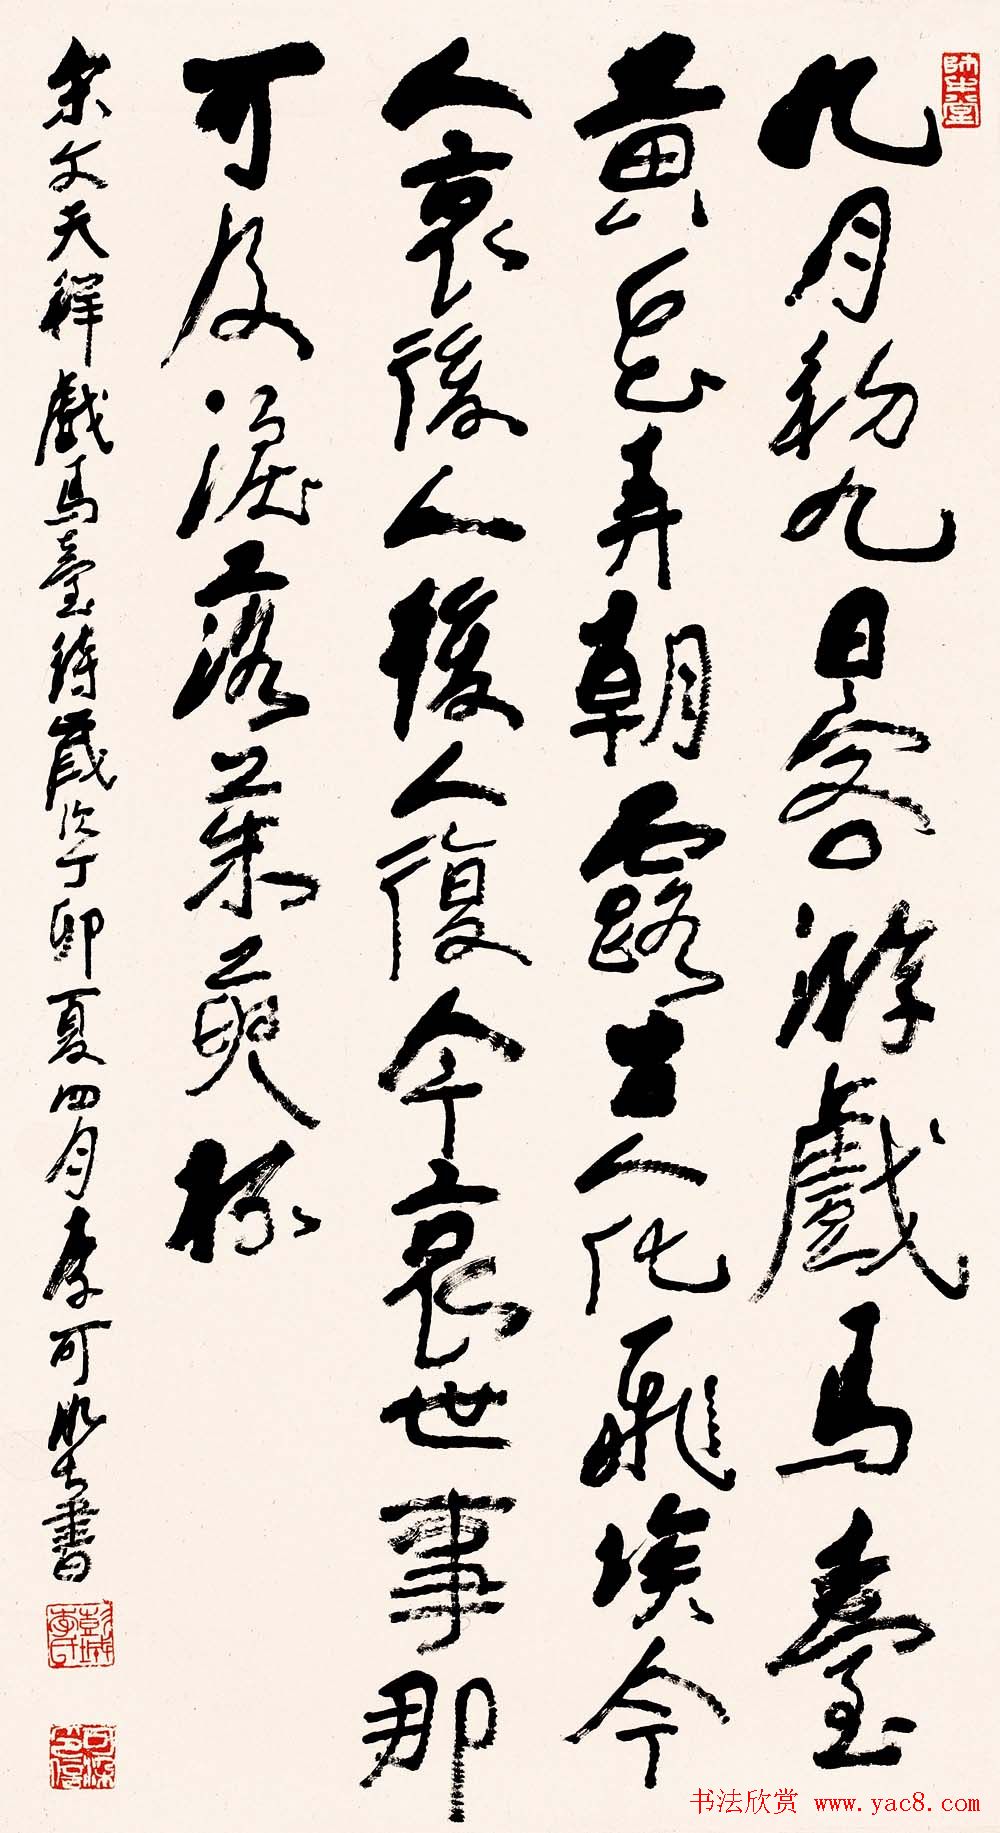 師牛堂
九月初九日客游戲馬臺
黄花弄朝露古人化飛埃今
人哀後人後人復今哀世事那
可及淚落茱萸杯
宋文天祥戲馬臺詩歲次丁卯夏四月李可染書
彭城李氏
书法欣赏 www.yac8.com